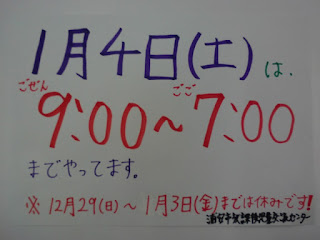 1月4日(土)は、
ごぜん ごご
9:00〜7:00
までやってます。
※12月29(日)〜1月3日(金)までは休みです!